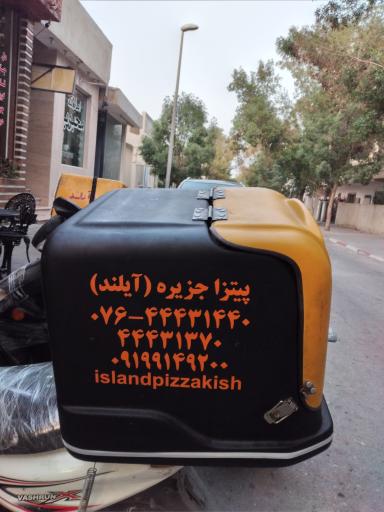 پیتزا جزیره (آیلند)
۰۷۶-۴۴۴۳۱۴۴۰
۴۴۴۳۱۳۷۰
۰۹۱۹۹۱۴۹۲۰۰
islandpizzakish
VASHRUN